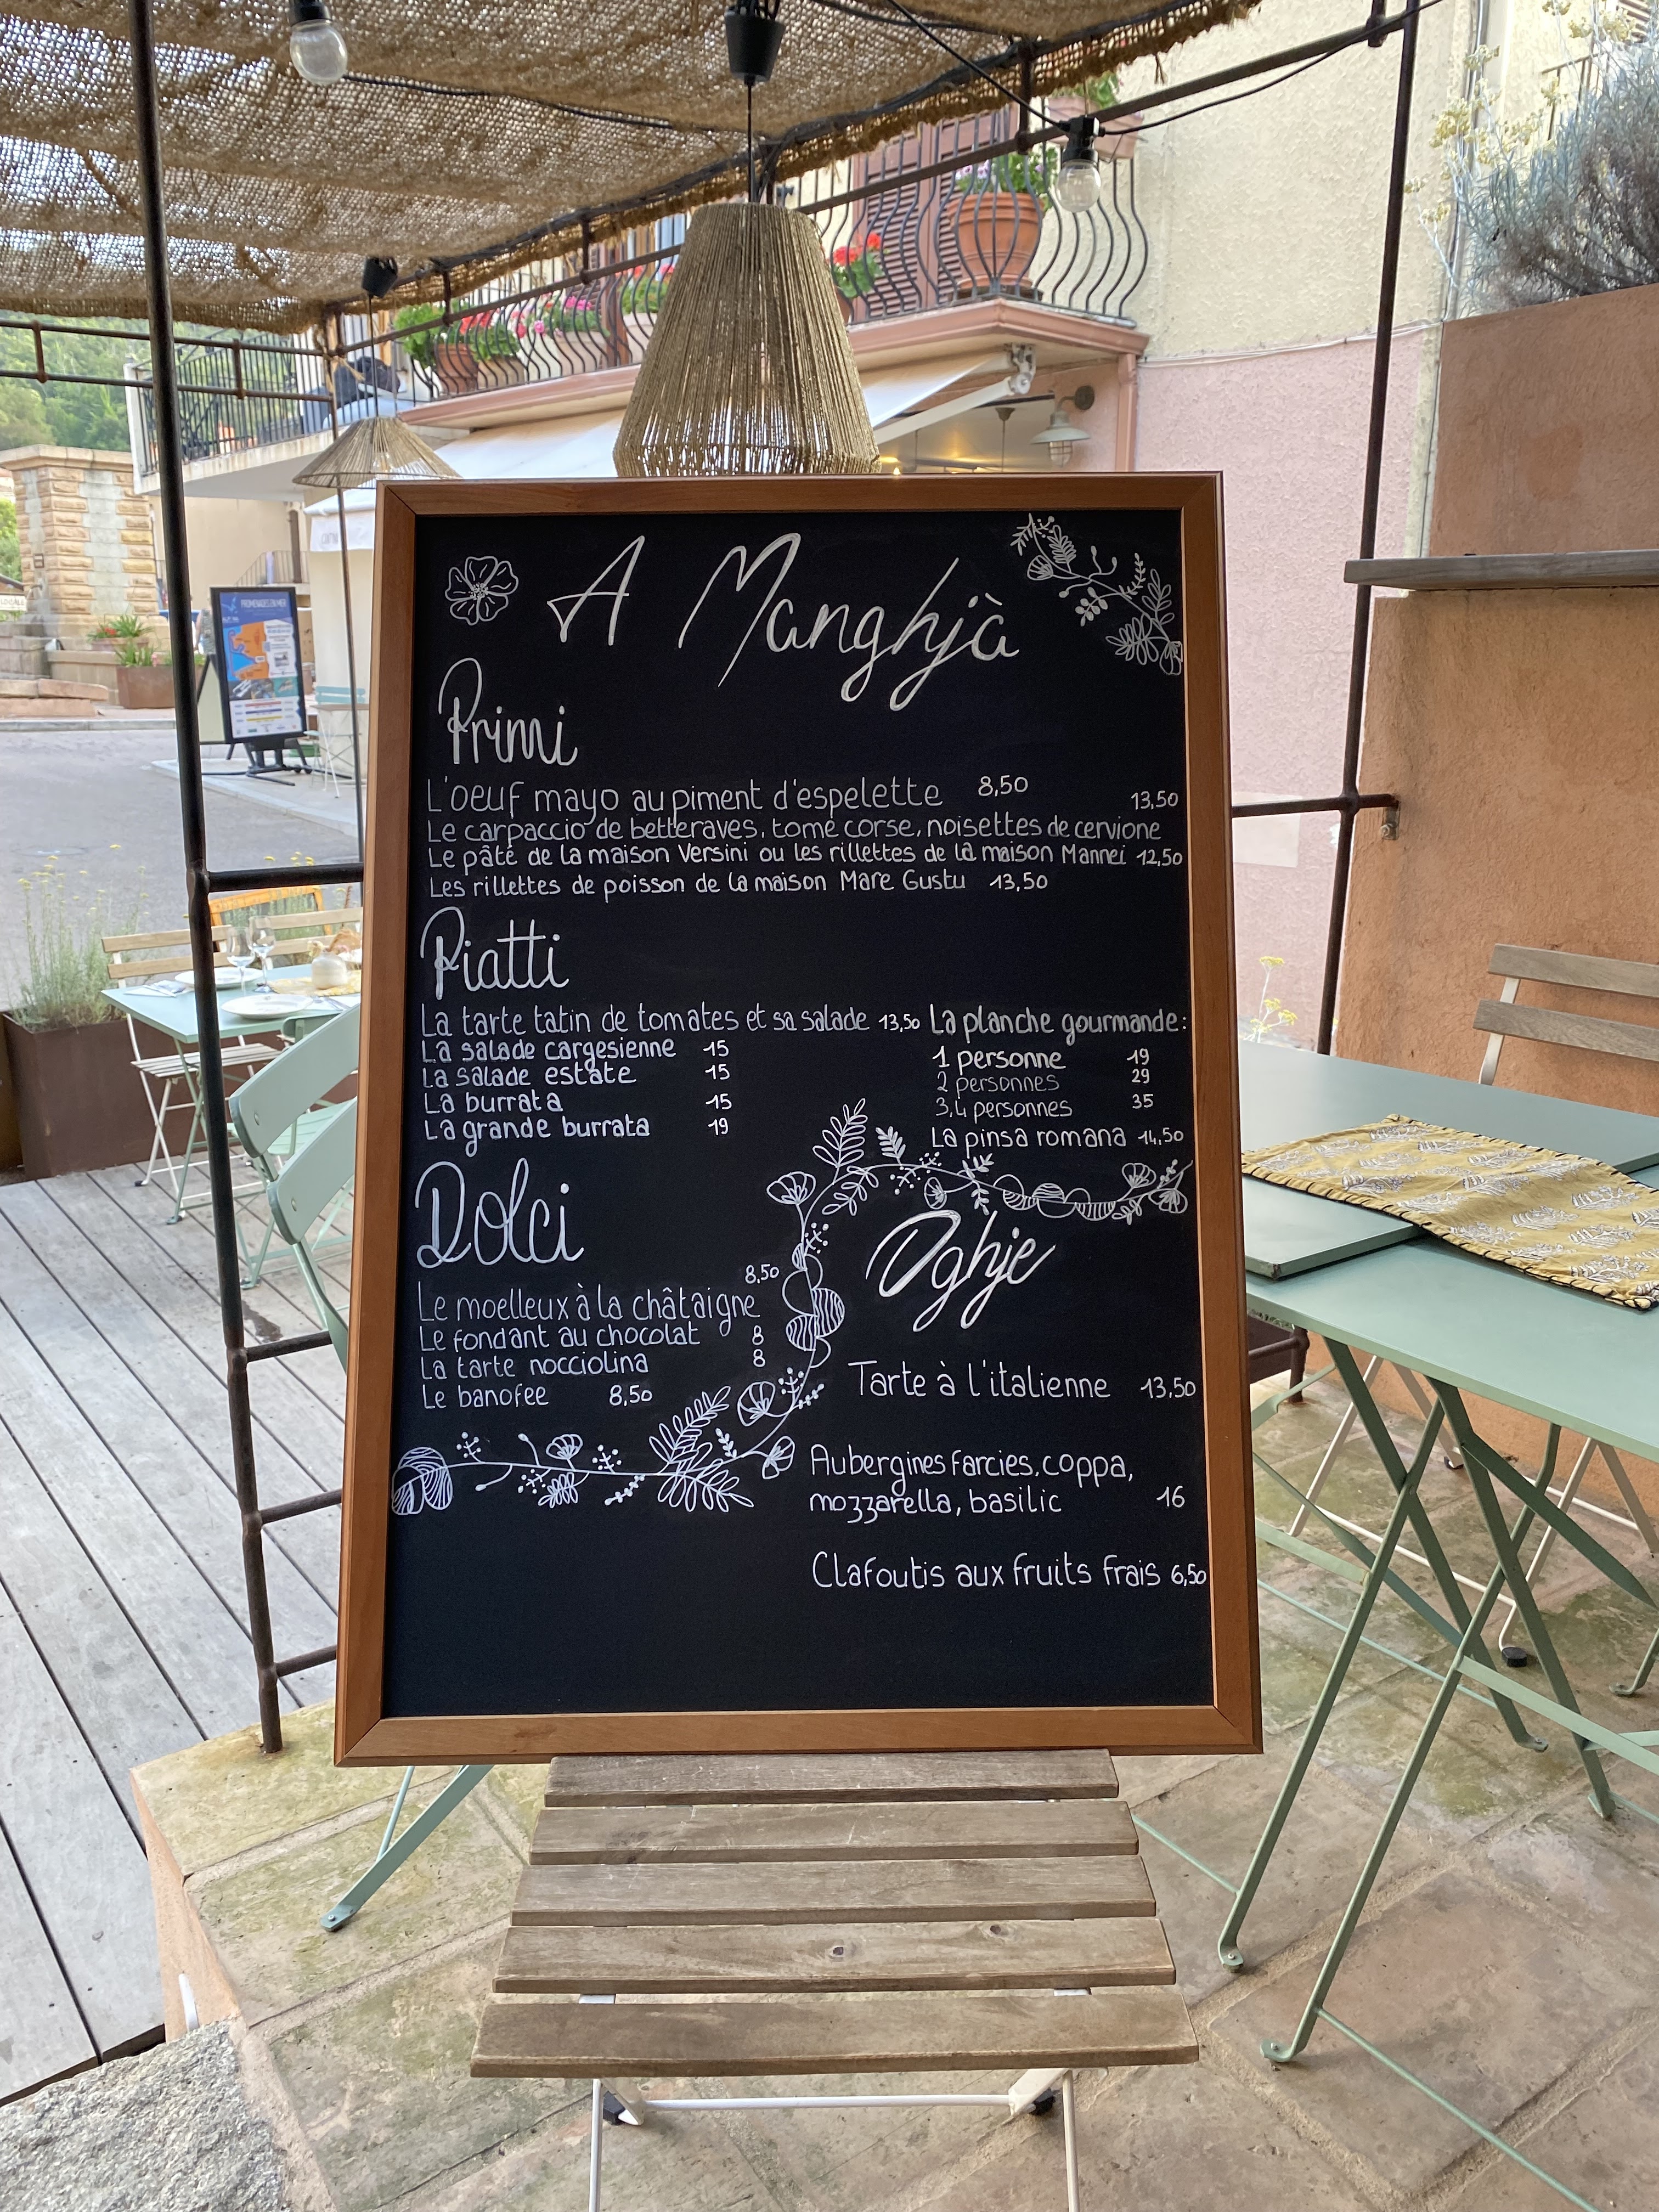 A Manghjà
Primi
L'oeuf mayo au piment d'espelette 8,50
13,50
Le carpaccio de betteraves, tome corse, noisettes de cervione
Le pâté de la maison Versini ou les rillettes de la maison Mannei 12,50
Les rillettes de poisson de la maison Mare Gustu 13,50
Piatti
La tarte tatin de tomates et sa salade 13,50
La salade cargesienne 15
La salade estate 15
La burrata 15
La grande burrata 19
La planche gourmande:
1 personne 19
2 personnes 29
3,4 personnes 35
La pinsa romana 14,50
Dolci
8,50
Le moelleux à la châtaigne
Le fondant au chocolat 8
La tarte nocciolina 8
Le banofee 8,50
Oghje
Tarte à l'italienne 13,50
Aubergines farcies, coppa,
mozzarella, basilic 16
Clafoutis aux fruits frais 6,50
PROMENADES EN MER